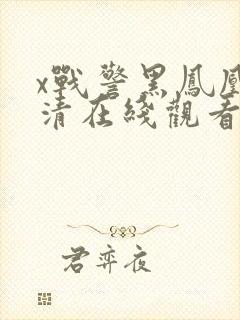 x戰警黑鳳凰
清在綫觀看
君弈夜